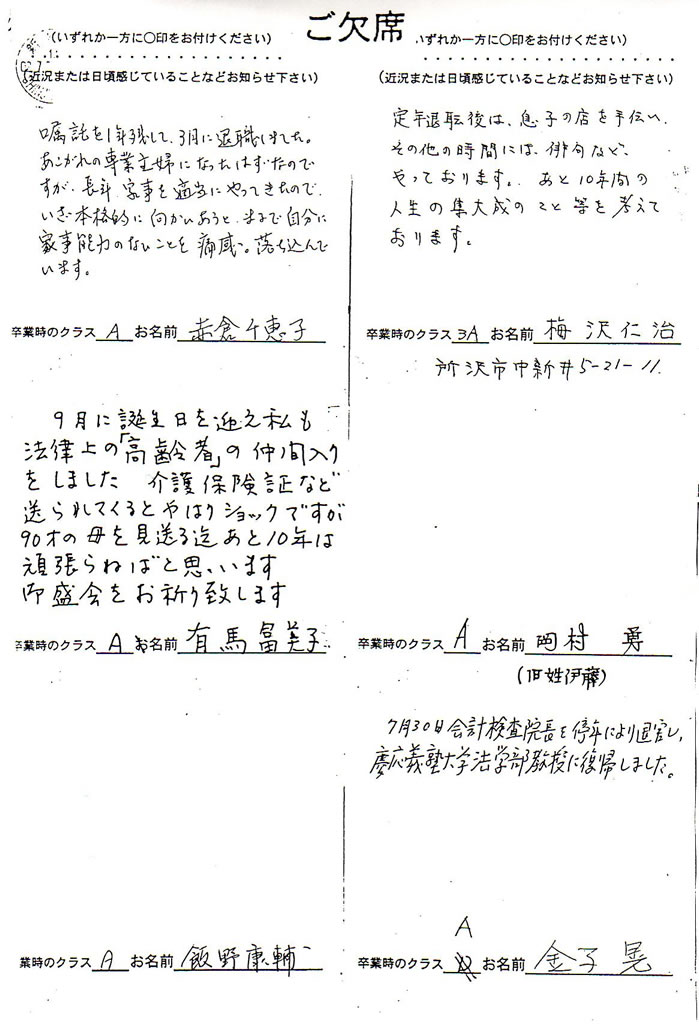 ご欠席
(いずれか一方に○印をお付けください)
(近況または日頃感じていることなどお知らせ下さい)
嘱託を1年残して、3月に退職しました。
あこがれの専業主婦になったはずなのです
が、長年、家事を適当にやってきたので、
いざ本格的に向かいあうと、まるで自分に
家事能力のないことを痛感。落ち込んで
います。
卒業時のクラス A お名前 赤倉千恵子
いずれか一方に○印をお付けください)
(近況または日頃感じていることなどお知らせ下さい)
定年退職後は、息子の店を手伝い、
その他の時間には、俳句など、
やっております。あと10年間の
人生の集大成のこと等を考えて
おります。
卒業時のクラス 3A お名前 梅沢仁治
所沢市中新井5-21-11
9月に誕生日を迎え私も
法律上の「高齢者」の仲間入り
をしました 介護保険証など
送られてくるとやはりショックですが
90才の母を見送る迄あと10年は
頑張らねばと思います
御盛会をお祈り致します
卒業時のクラス A お名前 有馬冨美子
卒業時のクラス A お名前 岡村 勇
(旧姓伊藤)
業時のクラス A お名前 飯野康輔
7月30日会計検査院長を停年により退官し、
慶応義塾大学法学部教授に復帰しました。
卒業時のクラス A お名前 金子 晃